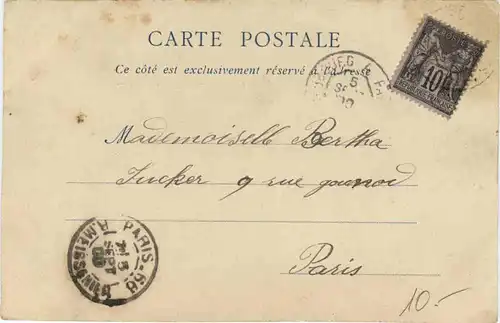 CARTE POSTALE
Ce côté est exclusivement réservé à l'adresse
5
10
Mademoiselle Bertha
Jucker 9 rue gounod
Paris
PARIS-68
5
SEPT
10.-